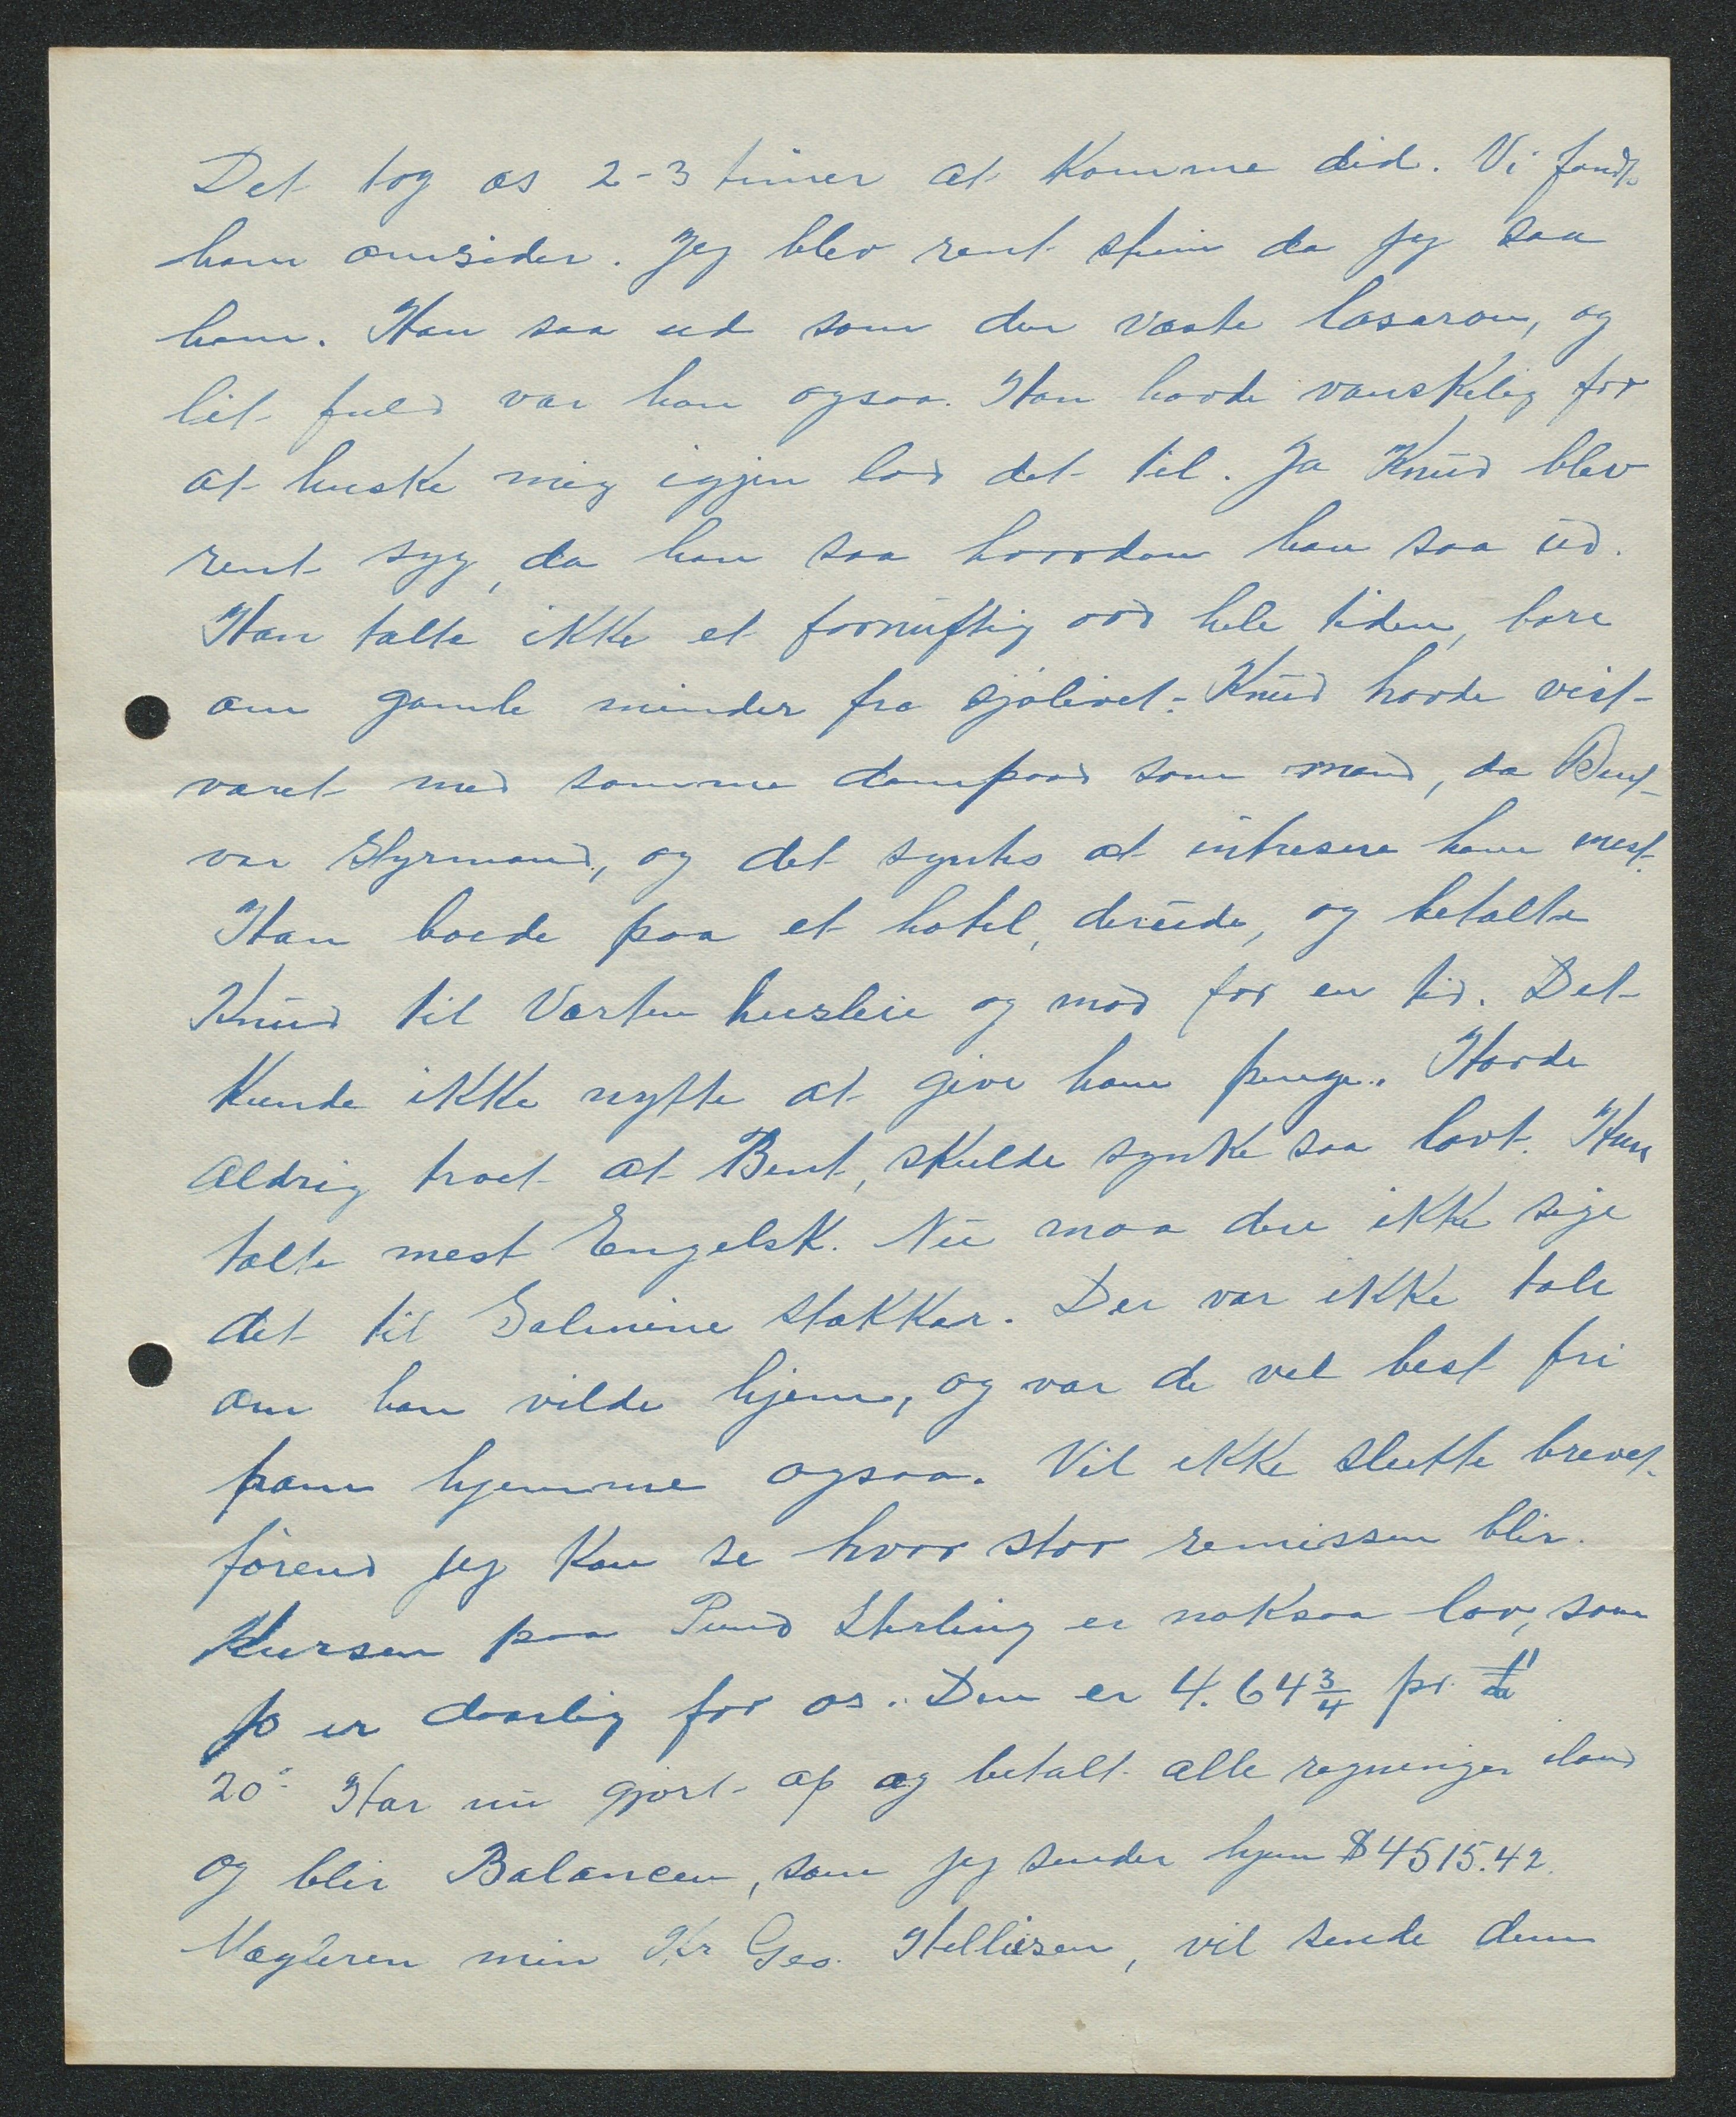 Det tog os 2-3 timer at komme did. Vi fandt
ham omsider. Jeg blev rent stiu da jeg saa
ham. Han saa ud som den værste lasaron, og
lit fuld var han ogsaa. Han havde vanskelig for
at huske mig igjen lod det til. Ja Knud blev
rent syg, da han saa hvordan han saa ud.
Han talte ikke et fornuftig ord hele tiden, bare
om gamle minder fra sjølivet. Knud havde vist
været med samme dampbaad som mand, da Bent
var Styrmand, og det syntes at intresere ham mest.
Han boede paa et hotel, derude, og betalte
Knud til Værten husleie og mad for en tid. Det
kunde ikke nytte at give ham penge. Havde
aldrig troet at Bent, skulde synke saa lavt. Han
talte mest Engelsk. Nu maa dere ikke sige
det til Salmine stakkar. Der var ikke tale
om han vilde hjem, og var de vel best fri
ham hjemme ogsaa. Vil ikke slutte brevet
førend jeg kan se hvor stor remissen blir.
Kursen paa Pund Sterling er noksaa lav, som
jo er daarlig for os. Den er 4.64 3/4 pr £
20' Har nu gjort op og betalt alle regninger iland
og blir Balancen, som jeg sender hjem $4515.42.
Mægleren min Kr Geo. Helliesen, vil sende dem